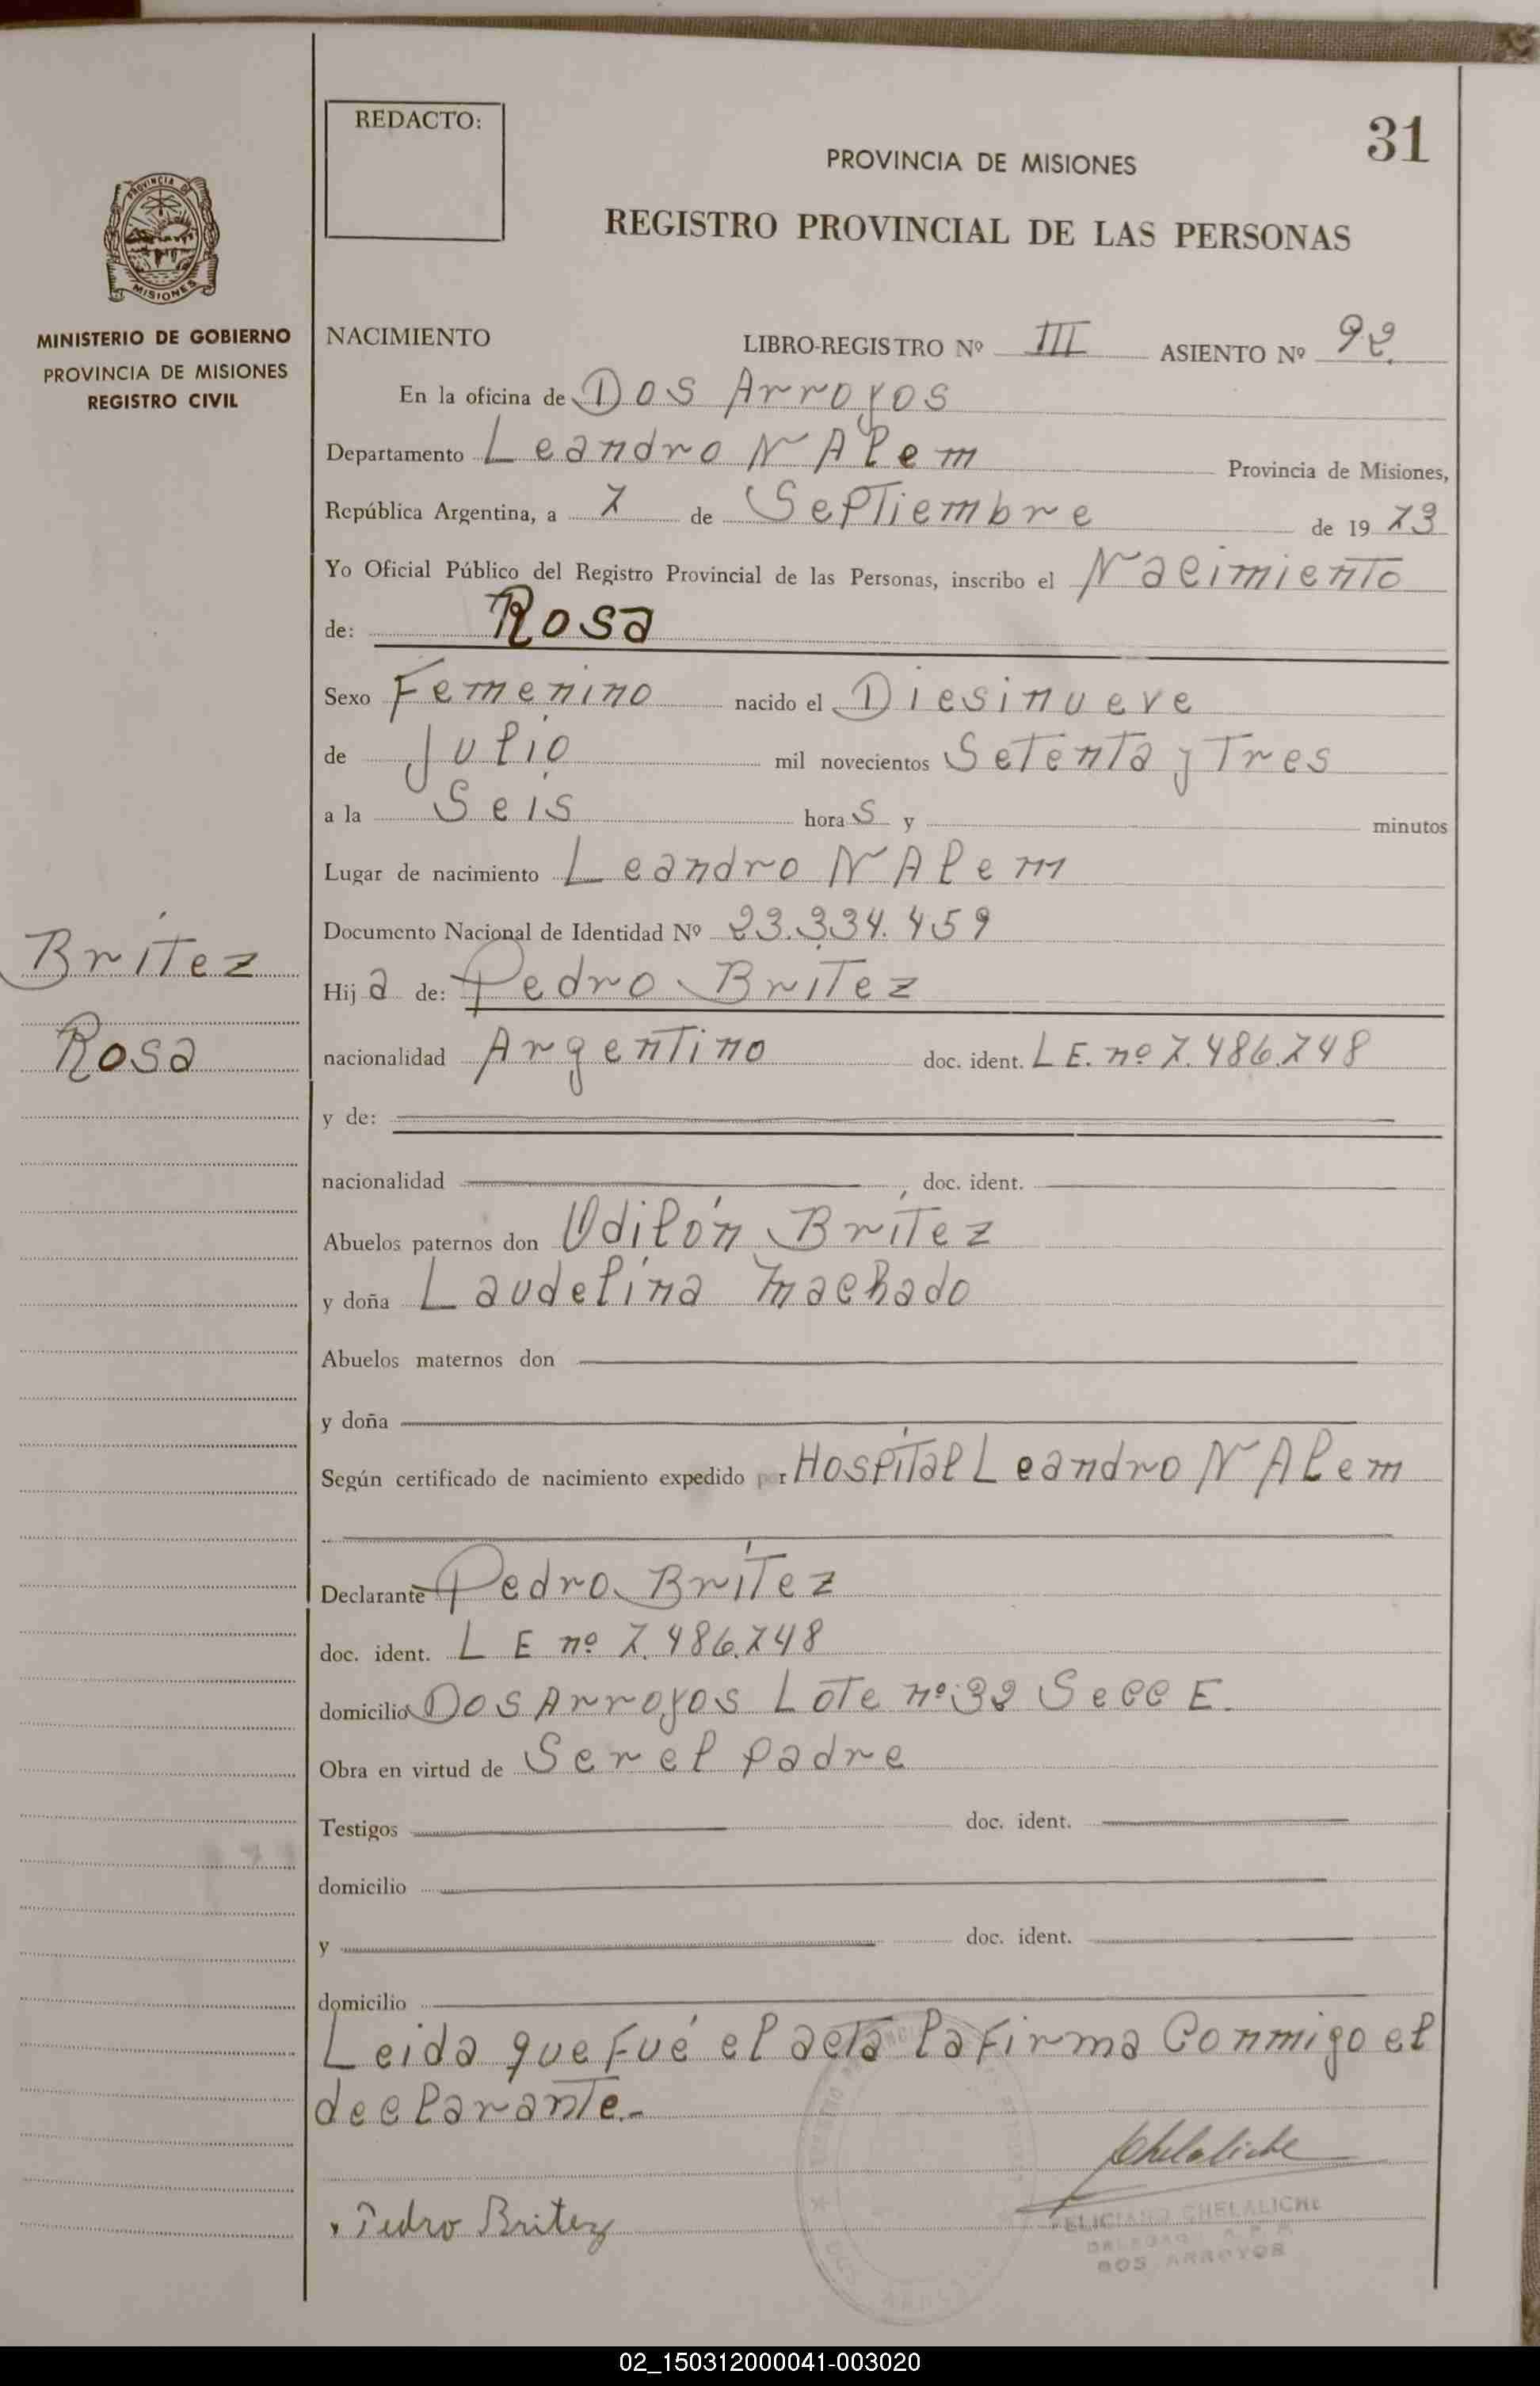 REDACTO:
31
PROVINCIA DE MISIONES
REGISTRO PROVINCIAL DE LAS PERSONAS
PROVINCIA DE
MISIONES
MINISTERIO DE GOBIERNO
PROVINCIA DE MISIONES
REGISTRO CIVIL
NACIMIENTO LIBRO-REGISTRO Nº III ASIENTO Nº 92
En la oficina de Dos Arroyos
Departamento Leandro N Alem Provincia de Misiones,
República Argentina, a 7 de Septiembre de 19 73
Yo Oficial Público del Registro Provincial de las Personas, inscribo el Nacimiento
de: Rosa
Sexo Femenino nacido el Diesinueve
de Julio mil novecientos Setenta y Tres
a la Seis hora s y minutos
Lugar de nacimiento Leandro N Alem
Documento Nacional de Identidad Nº 23.334.459
Brítez
Hij a de: Pedro Britez
Rosa
nacionalidad Argentino doc. ident. L E. nº 7.486.748
y de:
nacionalidad , doc. ident.
Abuelos paternos don Odilón Brítez
y doña Laudelina Machado
Abuelos maternos don
y doña
Según certificado de nacimiento expedido por Hospítal Leandro N Alem
Declarante Pedro Brítez
doc. ident. L E nº 7.486.748
domicilio Dos Arroyos Lote nº 32 Secc E.
Obra en virtud de Ser el padre
Testigos doc. ident.
domicilio
y doc. ident.
domicilio
Leida que fué el acta la firma Conmigo el
declarante.-
Chelaliche
Pedro Britez
FELICIANO CHELALICHE
DOS ARROYOS
02_150312000041-003020